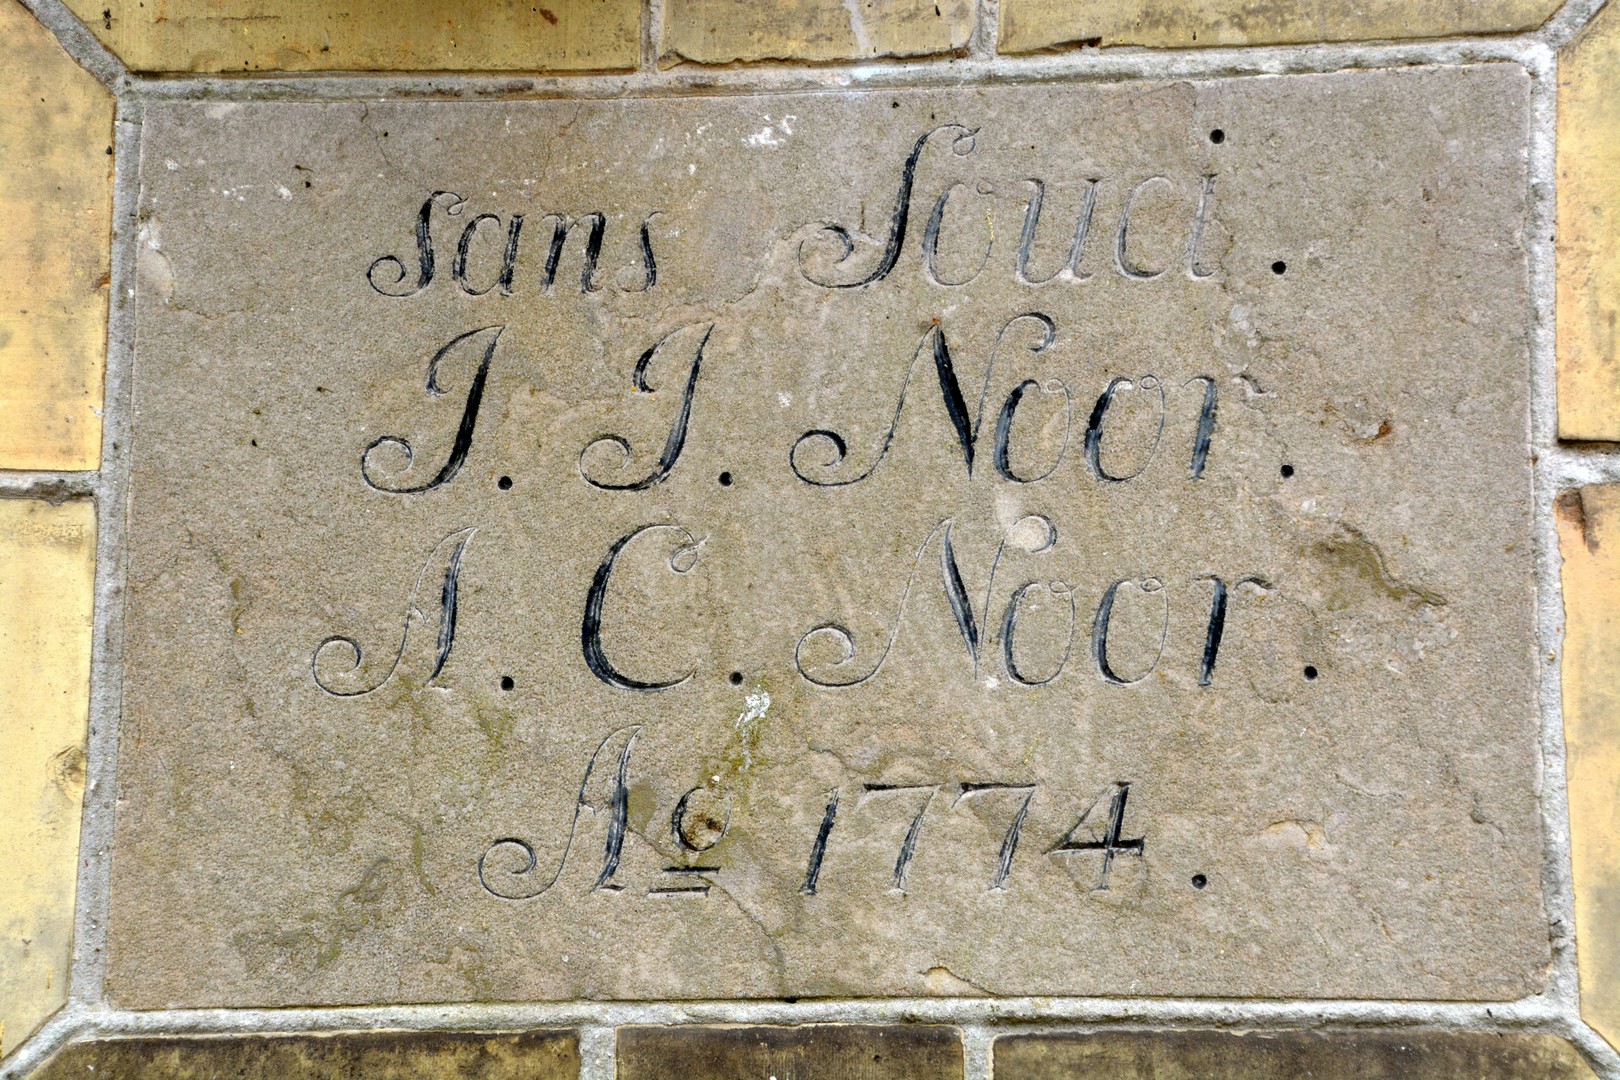 sans Souci.
J. J. Noor.
A. C. Noor.
Aº 1774.